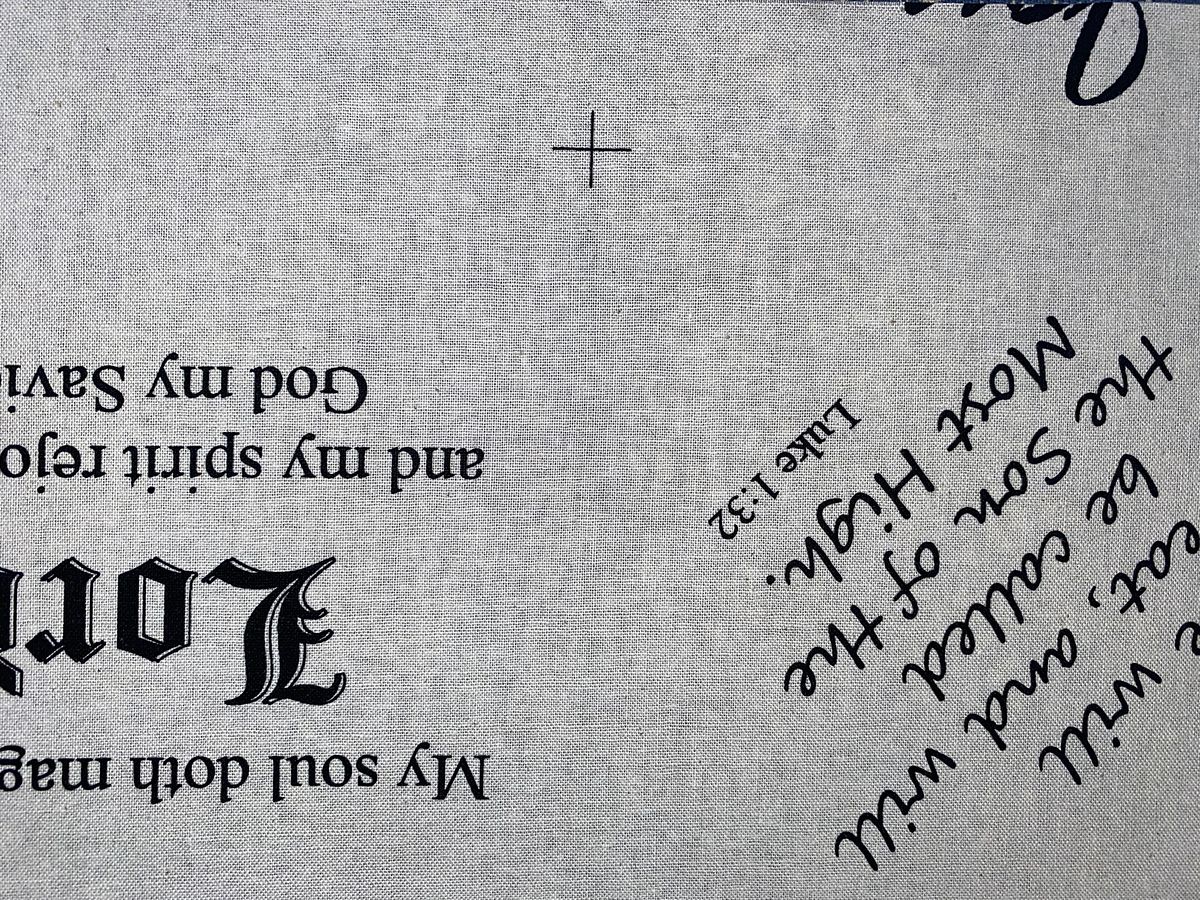 e will
eat, and will
be called
the Son of the
Most High.
Luke 1:32
My soul doth mag
Lor
and my spirit rejo
God my Savi